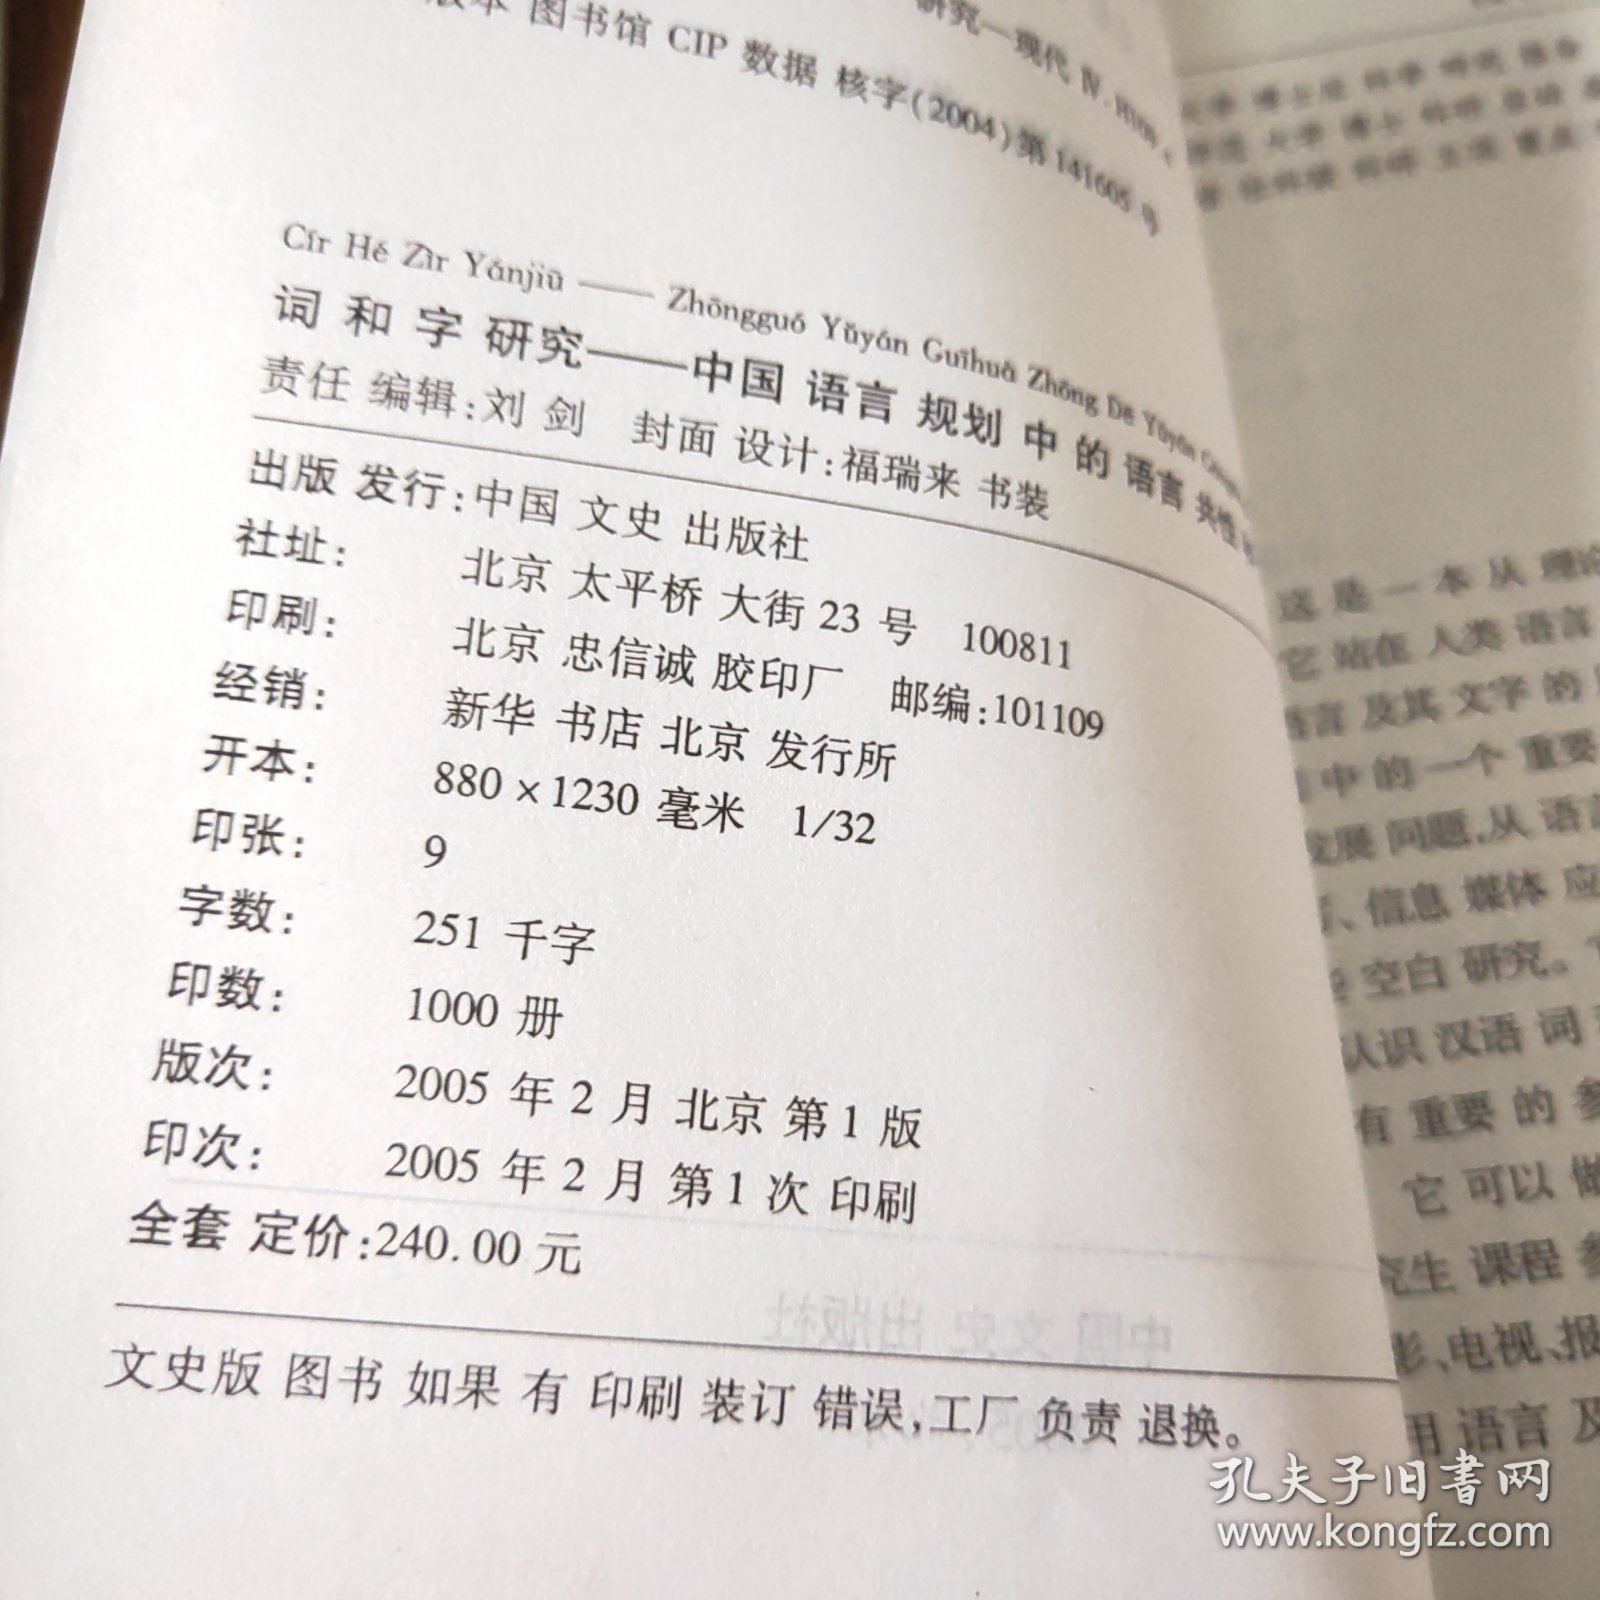 研究—现代 Ⅳ.
图书馆 CIP 数据 核字(2004)第 141605 号
Cír Hé Zìr Yánjiū —— Zhōngguó Yǔyán Guīhuà Zhōng De Yǔyán
词 和 字 研究——中国 语言 规划 中 的 语言 共性
责任 编辑:刘 剑 封面 设计:福瑞来 书装
出版 发行:中国 文史 出版社
社址: 北京 太平桥 大街 23 号 100811
印刷: 北京 忠信诚 胶印厂 邮编:101109
经销: 新华 书店 北京 发行所
开本: 880 × 1230 毫米 1/32
印张: 9
字数: 251 千字
印数: 1000 册
版次: 2005 年 2 月 北京 第 1 版
印次: 2005 年 2 月 第 1 次 印刷
全套 定价:240.00 元
文史版 图书 如果 有 印刷 装订 错误,工厂 负责 退换。
这 是 一 本 从 理论
它 站在 人类 语言
语言 及其 文字 的
中 的 一个 重要
发展 问题,从 语言
、信息 媒体 应
空白 研究。
认识 汉语 词
有 重要 的
它 可以 做
究生 课程
影、电视、报
用 语言 及
孔夫子旧书网
www.kongfz.com